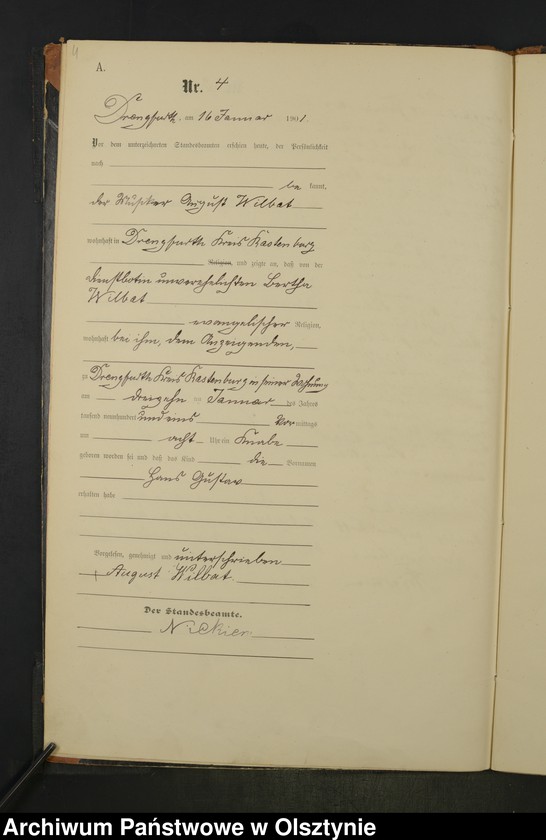 4
A.
Nr. 4
Drengfurth, am 16 Januar 1901.
Vor dem unterzeichneten Standesbeamten erschien heute, der Persönlichkeit
nach
be kannt,
der Musiker August Wilbat
wohnhaft in Drengfurth Kreis Rastenburg
Religion, und zeigte an, daß von der
Dienstbotin unverehelichten Bertha
Wilbat
evangelischer Religion,
wohnhaft bei ihm, dem Anzeigenden,
zu Drengfurth Kreis Rastenburg in seiner Wohnung
am dreizehn ten Januar des Jahres
tausend neunhundert und eins Vor mittags
um acht Uhr ein Knabe
geboren worden sei und daß das Kind die Vornamen
Hans Gustav
erhalten habe
Vorgelesen, genehmigt und unterschrieben
August Wilbat
Der Standesbeamte.
Archiwum Państwowe w Olsztynie